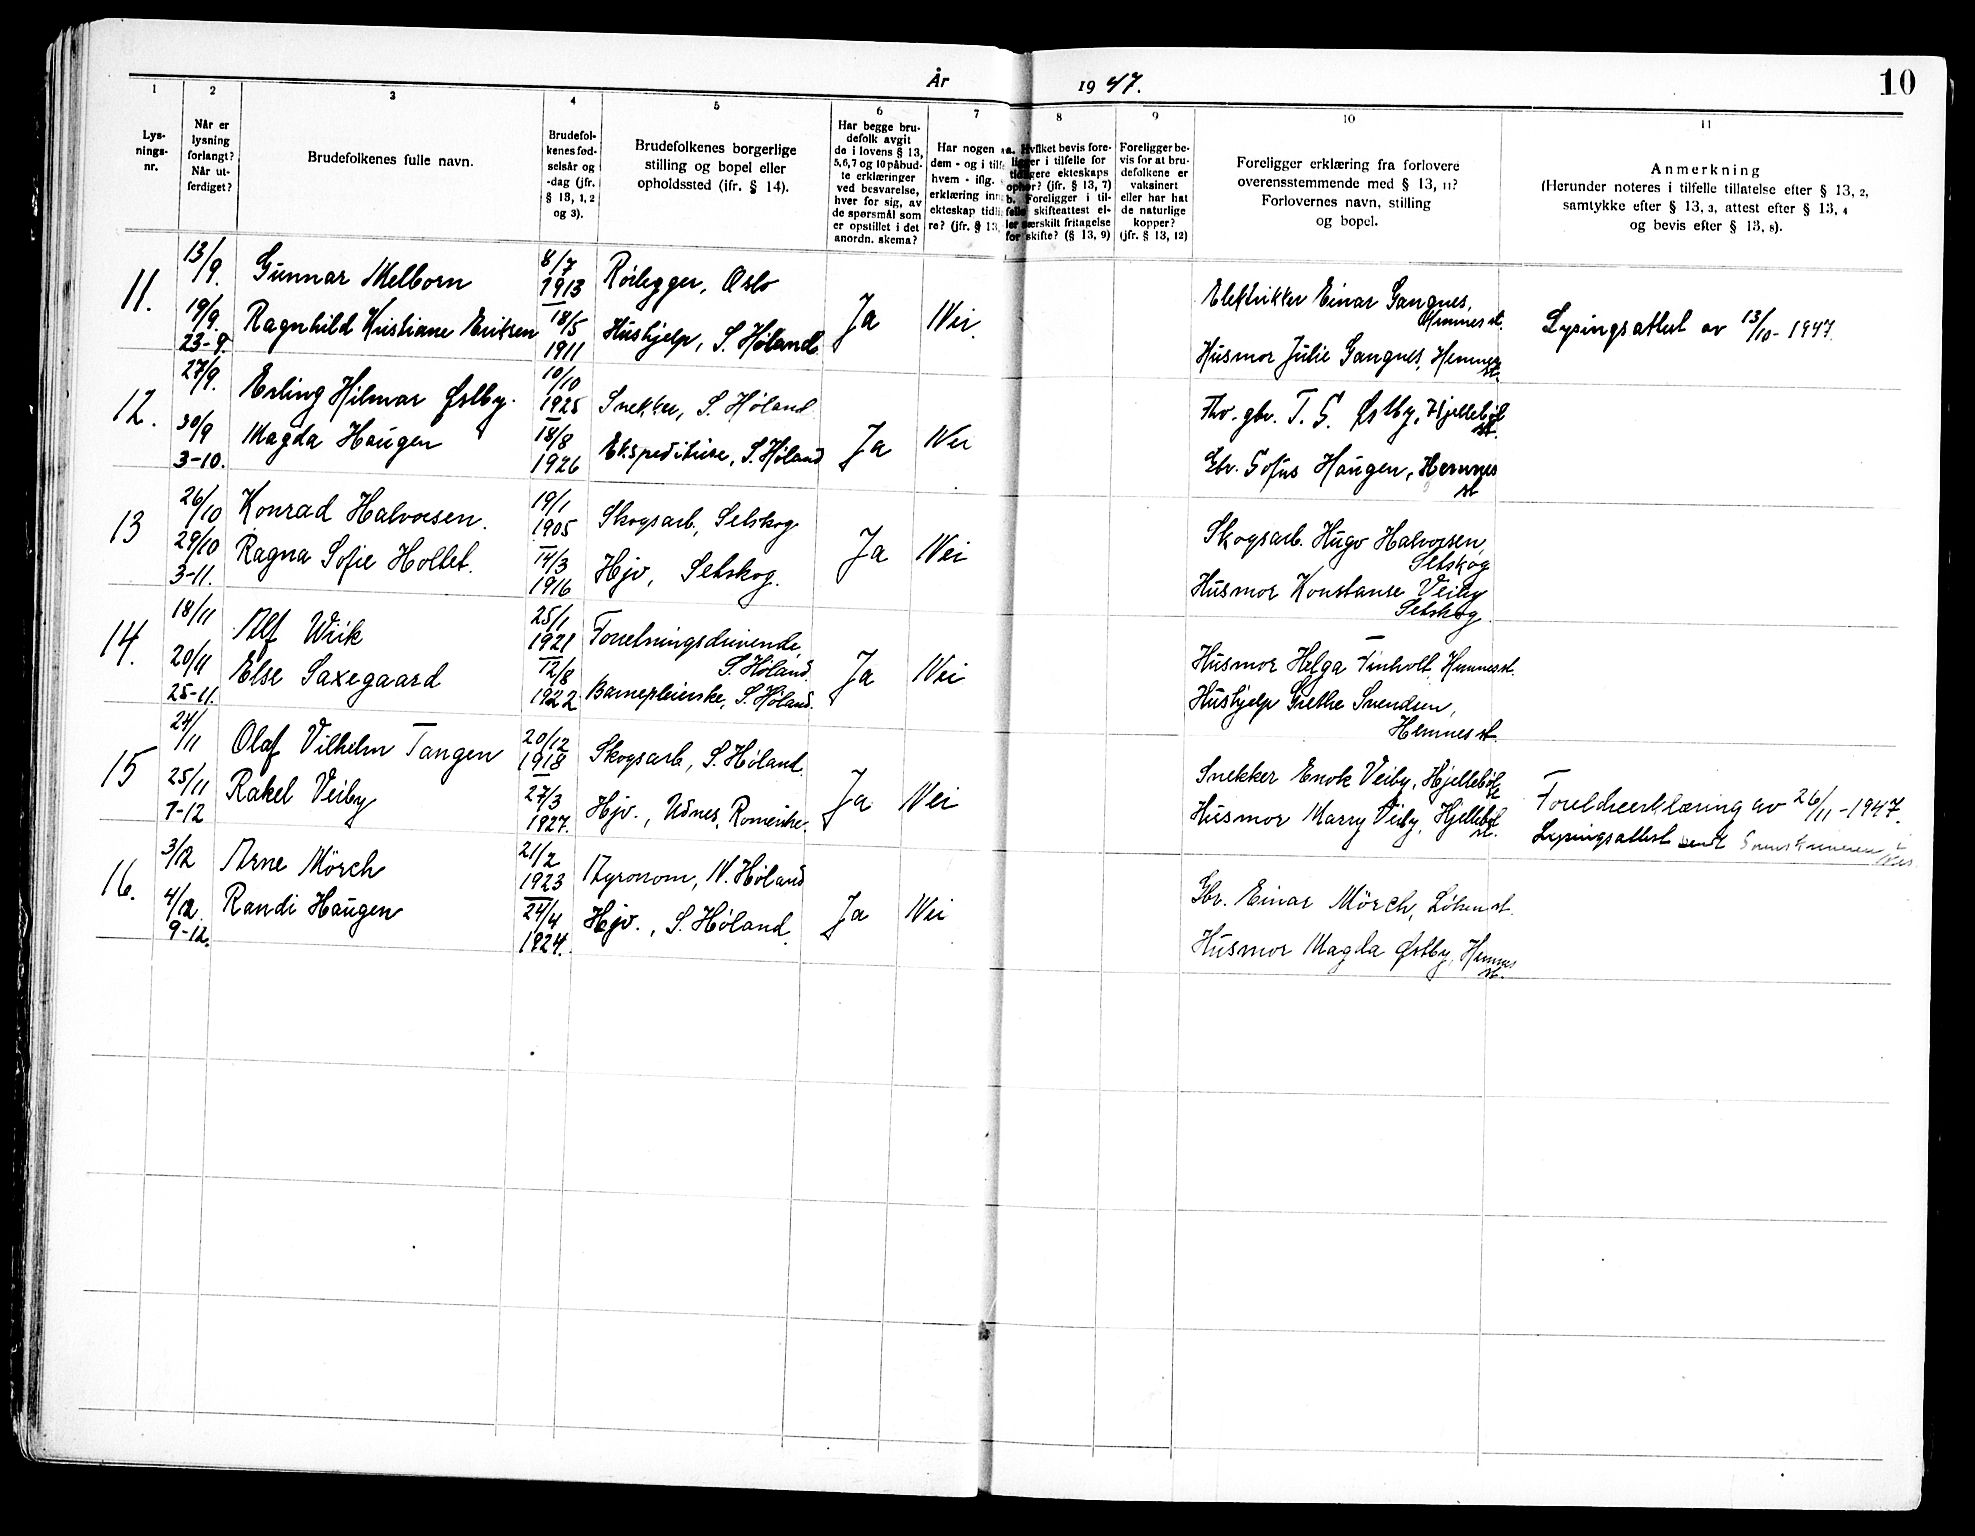 År 1947.
10
1
2
3
4
5
6
7
8
9
10
11
Lys-
nings-
nr.
Når er
lysning
forlangt?
Når ut-
ferdiget?
Brudefolkenes fulle navn.
Brudefol-
kenes fød-
selsår og
-dag (jfr.
§ 13, 1, 2
og 3).
Brudefolkenes borgerlige
stilling og bopel eller
opholdssted (jfr. § 14).
Har begge bru-
defolk avgit
de i lovens § 13,
5,6,7 og 10 påbud-
te erklæringer
ved besvarelse,
hver for sig, av
de spørsmål som
er opstillet i det
anordn. skema?
Har nogen a
dem - og i tilf
hvem - iflg.
erklæring inn
ekteskap tidli
re? (jfr. § 13,
a. Hvilket bevis fore-
ligger i tilfelle for
tidligere ekteskaps
ophør? (jfr. § 13, 7)
b. Foreligger i til-
felle skifteattest el-
ler særskilt fritagelse
for skifte? (§ 13, 9)
Foreligger be-
vis for at bru-
defolkene er
vaksinert
eller har hat
de naturlige
kopper?
(jfr. § 13, 12)
Foreligger erklæring fra forlovere
overensstemmende med § 13, 11?
Forlovernes navn, stilling
og bopel.
Anmerkning
(Herunder noteres i tilfelle tillatelse efter § 13, 2,
samtykke efter § 13, 3, attest efter § 13, 4
og bevis efter § 13, 8).
11.
13/9.
19/9.
23-9.
Gunnar Melborn
Ragnhild Kristiane Eriksen
8/7
1913
18/5
1911
Rørlegger, Oslo
Hushjelp, S. Høland
Ja
Nei.
Elektrikker Einar Gangnes,
Hemnes st.
Husmor Julie Gangnes, Hemnes
st.
Lysingsattest av 13/10-1947.
12.
27/9.
30/9
3-10.
Erling Hilmar Østby.
Magda Haugen
10/10
1925
18/8
1926
Snekker, S. Høland
Ekspeditrise, S. Høland
Ja
Nei
Thv. gbr. T. S. Østby, Hjellebøl
st.
Gbr. Sofus Haugen, Hemnes
st
13
26/10
29/10
3-11.
Konrad Halvorsen.
Ragna Sofie Holtet.
19/1
1905
14/3
1916
Skogsarb., Setskog
Hjv, Setskog.
Ja
Nei
Skogsarb. Hugo Halvorsen,
Setskog
Husmor Konstanse Veiby
Setskog.
14.
18/11
20/11
25-11.
Alf Wiik
Else Saxegaard
25/1
1921
12/8
1922
Forretningsdrivende,
S. Høland.
Barnepleierske, S. Høland.
Ja
Nei
Husmor Helga Finholt, Hemnes st.
Hushjelp Grethe Svendsen,
Hemnes st.
15
24/11
25/11
1-12
Olaf Vilhelm Tangen
Rakel Veiby
20/12
1918
27/3
1927.
Skogsarb, S. Høland.
Hjv., Udnes, Romerike.
Ja
Nei
Snekker Enok Veiby, Hjellebøl
st
Husmor Marry Veiby, Hjellebøl
st.
Foreldreerklæring av 26/11-1947.
Lysingsattest sendt
16.
3/12
4/12.
9-12.
Arne Mörch
Randi Haugen
21/2
1923
24/4
1924.
Agronom, N. Høland
Hjv., S. Høland.
Ja
Nei
Gbr. Einar Mörch, Løken st.
Husmor Magda Østby, Hemnes
st.